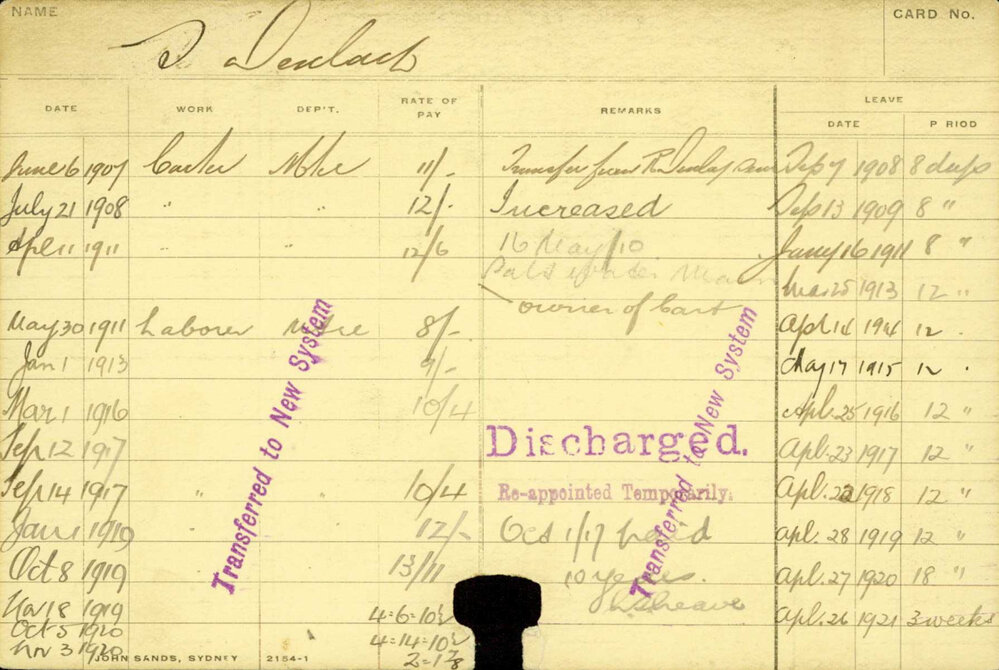 NAME
CARD No.
Dunlap
DATE WORK DEP'T. RATE OF PAY REMARKS LEAVE
DATE P RIOD
June 6 1907 Carter 11/- Transfer from R. Dunlap Sep 7 1908 8 days
July 21 1908 " " 12/- Increased Sep 13 1909 8 "
Apl 11 1911 " " 12/6 16 May/10 Jany 16 1911 8 "
Mar 25 1913 12 "
owner of Cart
May 30 1911 Laborer 8/- Apl 14 1914 12 .
Jan 1 1913 9/- May 17 1915 12 .
Mar 1 1916 10/4 Apl. 25 1916 12 "
Sep 12 1917 Discharged. Apl. 23 1917 12 "
Sep 14 1917 " " 10/4 Re-appointed Temporarily. Apl. 22 1918 12 "
Jan 1 1919 12/- Oct 1/17 Apl. 28 1919 12 "
Oct 8 1919 13/11 10 Apl. 27 1920 18 "
Nov 18 1919 4=6=10½ Apl. 26 1921 3 weeks
Oct 5 1920 4=14=10½
Nov 3 1920
JOHN SANDS, SYDNEY 2154-1
Transferred to New System
Transferred to New System